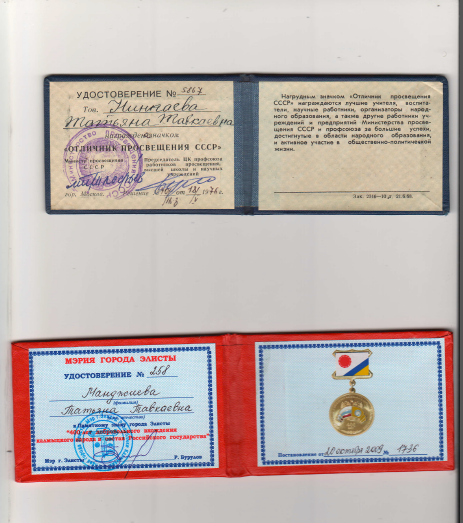 УДОСТОВЕРЕНИЕ № 5867
Тов.
Татьяна Тавкаевна
Награжден значком
«ОТЛИЧНИК ПРОСВЕЩЕНИЯ СССР»
Министр просвещения СССР
Председатель ЦК профсоюза работников просвещения, высшей школы и научных учреждений
Нагрудным значком «Отличник просвещения
СССР» награждаются лучшие учителя, воспита-
тели, научные работники, организаторы народ-
ного образования, а также другие работники уч-
реждений и предприятий Министерства просве-
щения СССР и профсоюза за большие успехи,
достигнутые в области народного образования,
и активное участие в общественно-политической
жизни.
МЭРИЯ ГОРОДА ЭЛИСТЫ
УДОСТОВЕРЕНИЕ № 258
Манджиева
(фамилия)
Татьяна Тавкаевна
к Памятному знаку города Элисты
"400 лет добровольного вхождения
калмыцкого народа в состав Российского государства"
Мэр г. Элисты
Р. Бурулов
Постановление от 20 октября 2009 № 1736